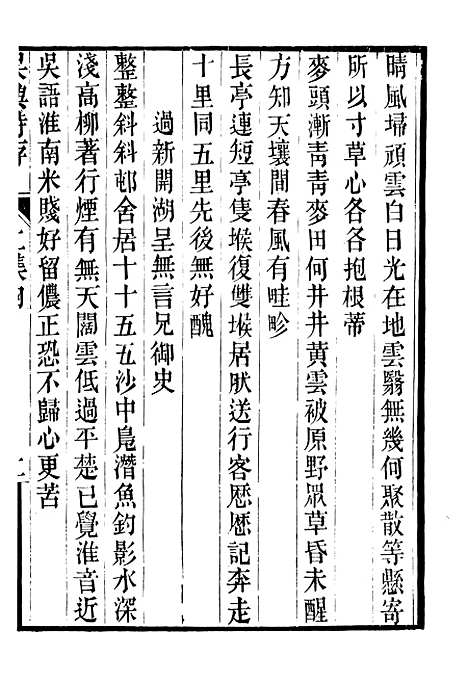 晴風埽頑雲白日光在地雲翳無幾何聚散等懸寄
所以寸草心各各抱根蒂
麥頭漸靑靑麥田何井井黃雲被原野眾草昏未醒
方知天壤間春風有畦畛
長亭連短亭隻堠復雙堠居肰送行客歷歷記奔走
十里同五里先後無好醜
過新開湖呈無言兄御史
整整斜斜邨舍居十十五五沙中鳧潛魚釣影水深
淺高柳著行煙有無天闊雲低過平楚已覺淮音近
吳語淮南米賤好留儂正恐不歸心更苦